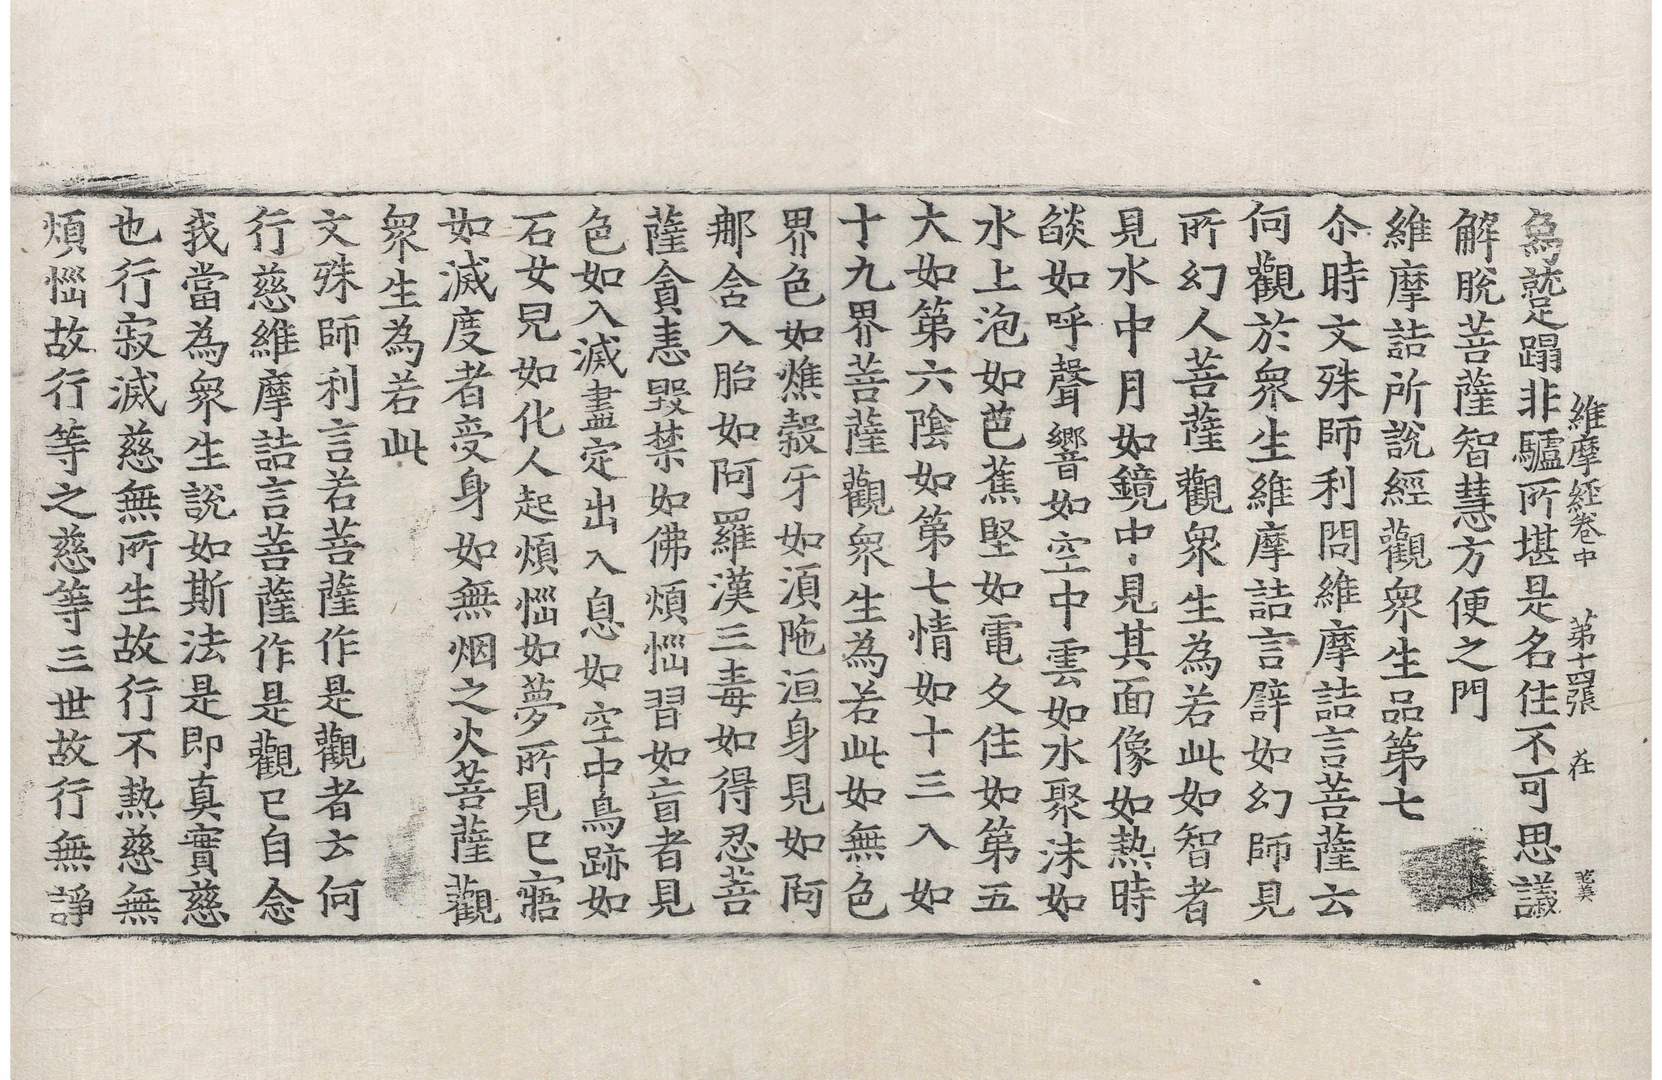 維摩経卷中 第十四張 在
象蹵蹋非驢所堪是名住不可思議
解脫菩薩智慧方便之門
維摩詰所說經觀衆生品第七
尒時文殊師利問維摩詰言菩薩云
何觀於衆生維摩詰言譬如幻師見
所幻人菩薩觀衆生為若此如智者
見水中月如鏡中見其面像如熱時
燄如呼聲響如空中雲如水聚沫如
水上泡如芭蕉堅如電久住如第五
大如第六陰如第七情如十三入如
十九界菩薩觀衆生為若此如無色
界色如燋穀牙如湏陁洹身見如阿
那含入胎如阿羅漢三毒如得忍菩
薩貪恚毀禁如佛煩惱習如盲者見
色如入滅盡定出入息如空中鳥跡如
石女兒如化人起煩惱如夢所見已寤
如滅度者受身如無烟之火菩薩觀
衆生為若此
文殊師利言若菩薩作是觀者云何
行慈維摩詰言菩薩作是觀已自念
我當為衆生說如斯法是即真實慈
也行寂滅慈無所生故行不熱慈無
煩惱故行等之慈等三世故行無諍